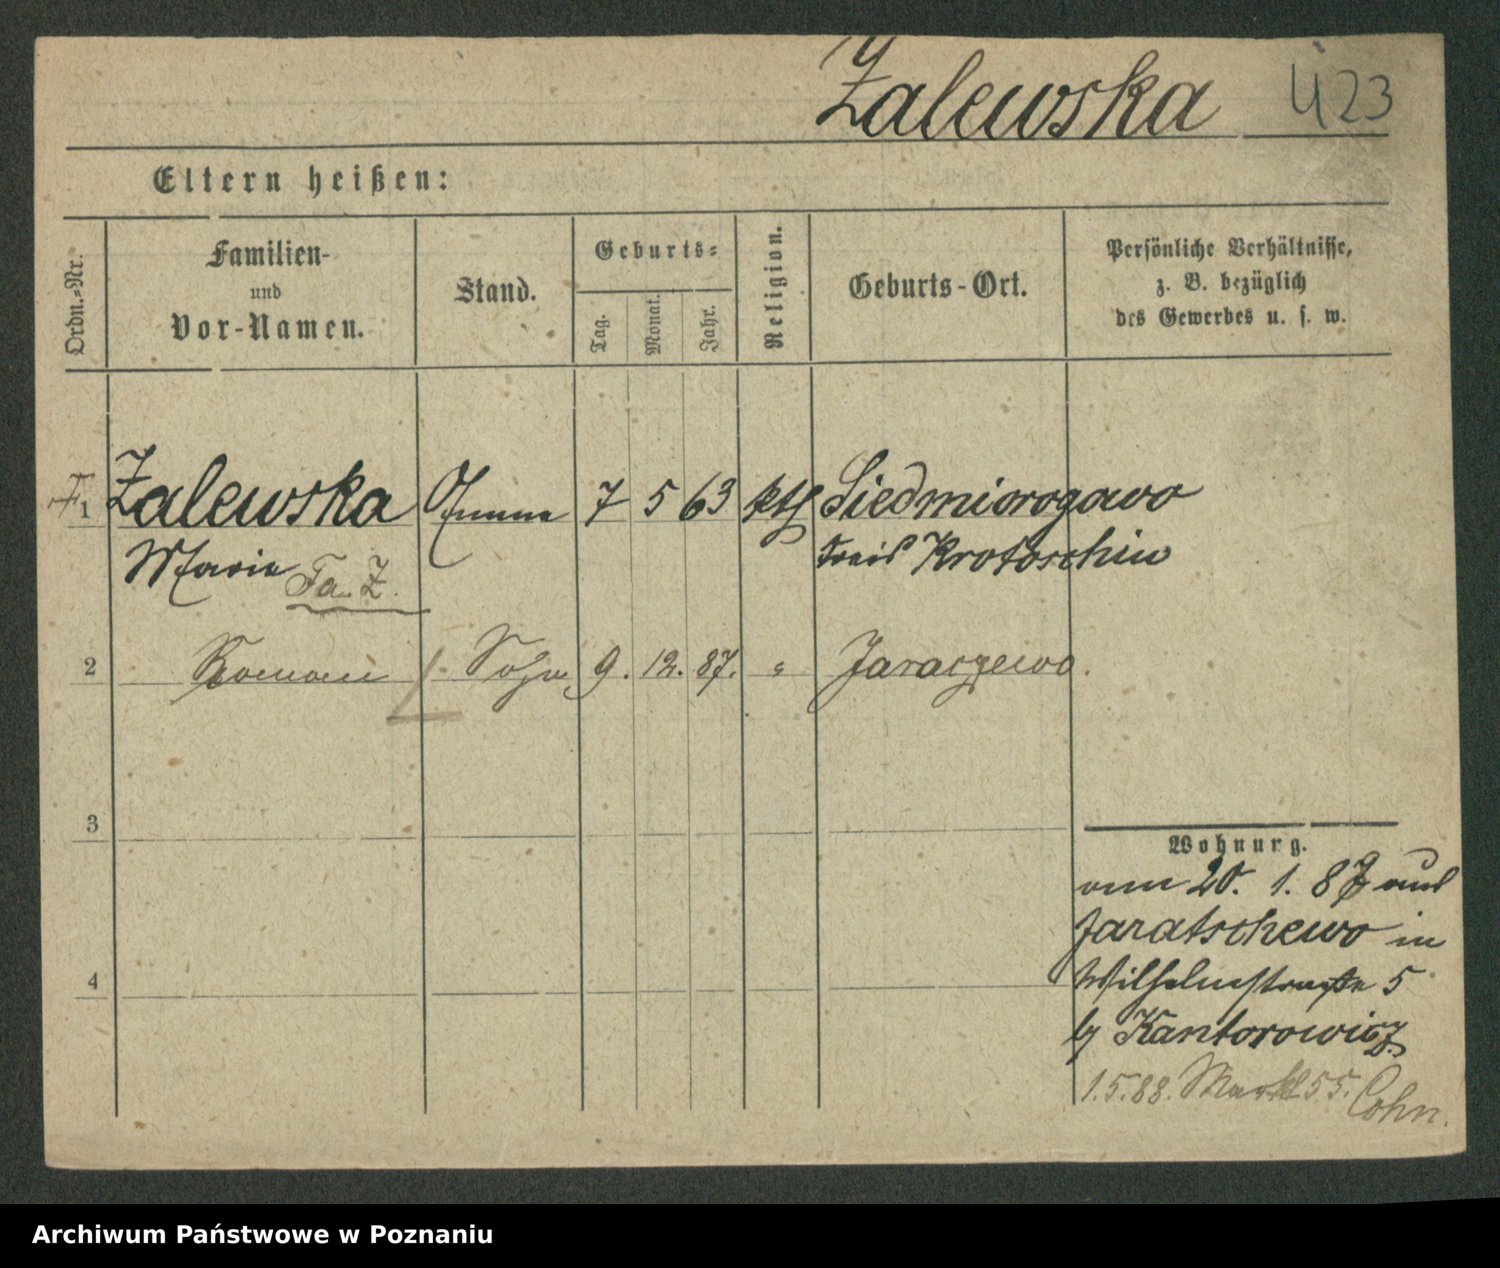 Zalewska 423
Eltern heißen:
Ordn.-Nr.
Familien-
und
Vor-Namen.
Stand.
Geburts-
Tag.
Monat.
Jahr.
Religion.
Geburts-Ort.
Persönliche Verhältnisse,
z. B. bezüglich
des Gewerbes u. s. w.
1 Zalewska Amme 7 5 63 kth Siedmiorogowo
Marie Kreis Krotoschin
2 Roman Sohn 9. 12. 87. " Jaraczewo.
3
4
Wohnung.
vom 20. 1. 87 aus
Jaratschewo in
Wilhelmstraße 5
b/ Kantorowicz
1.5.88. Markt 55. Cohn.
Archiwum Państwowe w Poznaniu